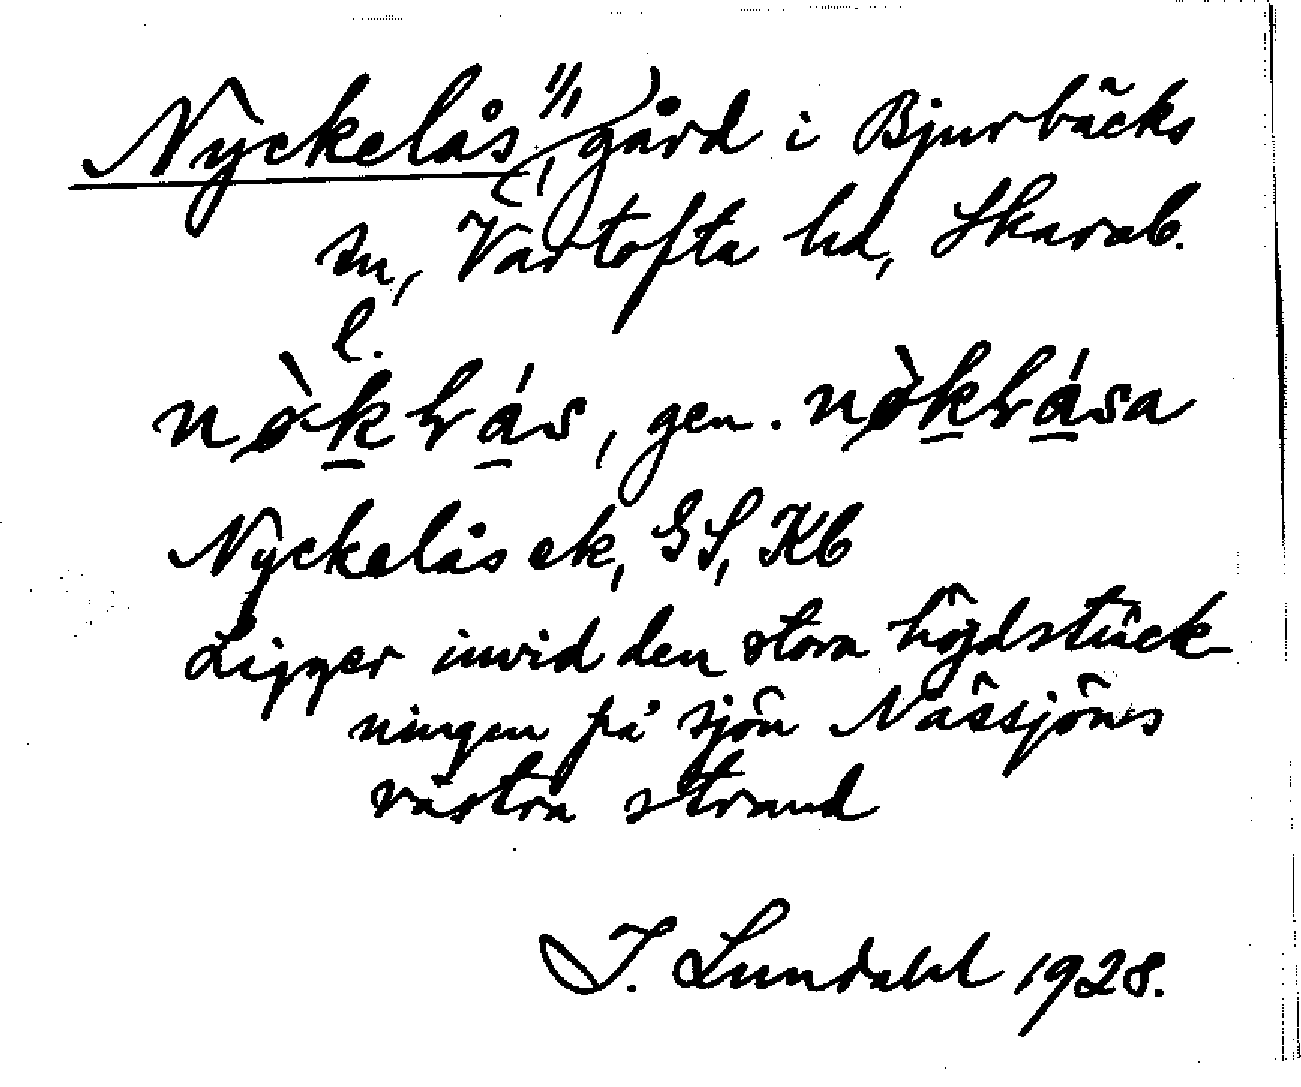 Nyckelås 1/1, (gård) i Bjurbäcks
sn, Vartofta hd, Skarab.
l.
nø̀kɬás, gen. nø̀kɬása
Nyckelås ek, GS, Kb
Ligger invid den stora höjdstäck-
ningen på sjön Nässjöns
västra strand
I. Lundahl 1928.